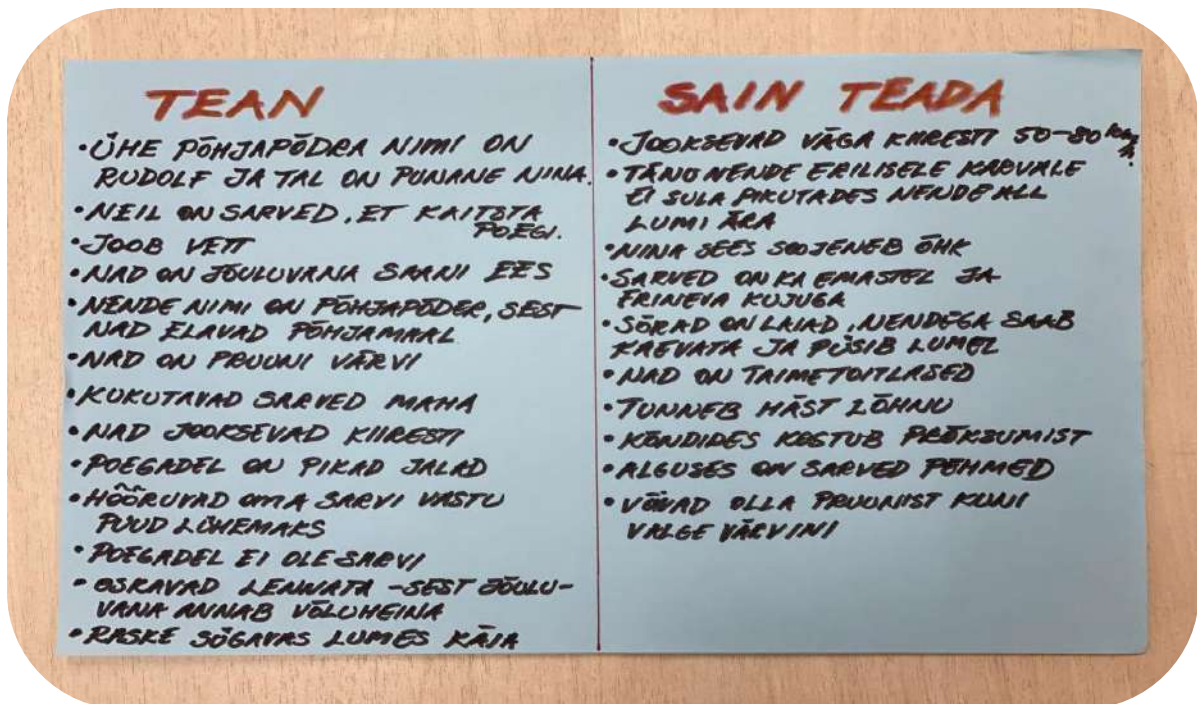 TEAN
• ÜHE PÕHJAPÕDRA NIMI ON
RUDOLF JA TAL ON PUNANE NINA.
• NEIL ON SARVED, ET KAITSTA
POEGI.
• JOOB VETT
• NAD ON JÕULUVANA SAANI EES
• NENDE NIMI ON PÕHJAPÕDER, SEST
NAD ELAVAD PÕHJAMAAL
• NAD ON PRUUNI VÄRVI
• KUKUTAVAD SARVED MAHA
• NAD JOOKSEVAD KIIRESTI
• POEGADEL ON PIKAD JALAD
• HÕÕRUVAD OMA SARVI VASTU
PUUD LÜHEMAKS
• POEGADEL EI OLE SARVI
• OSKAVAD LENNATA - SEST JÕULU-
VANA ANNAB VÕLUHEINA
• RASKE SÜGAVAS LUMES KÄIA
SAIN TEADA
• JOOKSEVAD VÄGA KIIRESTI 50-80 km/h
• TÄNU NENDE ERILISELE KARVALE
EI SULA PIKUTADES NENDE ALL
LUMI ÄRA
• NINA SEES SOOJENEB ÕHK
• SARVED ON KA EMASTEL JA
ERINEVA KUJUGA
• SÕRAD ON LAIAD, NENDEGA SAAB
KAEVATA JA PÜSIB LUMEL
• NAD ON TAIMETOITLASED
• TUNNEB HÄST LÕHNU
• KÕNDIDES KOSTUB PRÕKSUMIST
• ALGUSES ON SARVED PEHMED
• VÕIVAD OLLA PRUUNIST KUNI
VALGE VÄRVINI